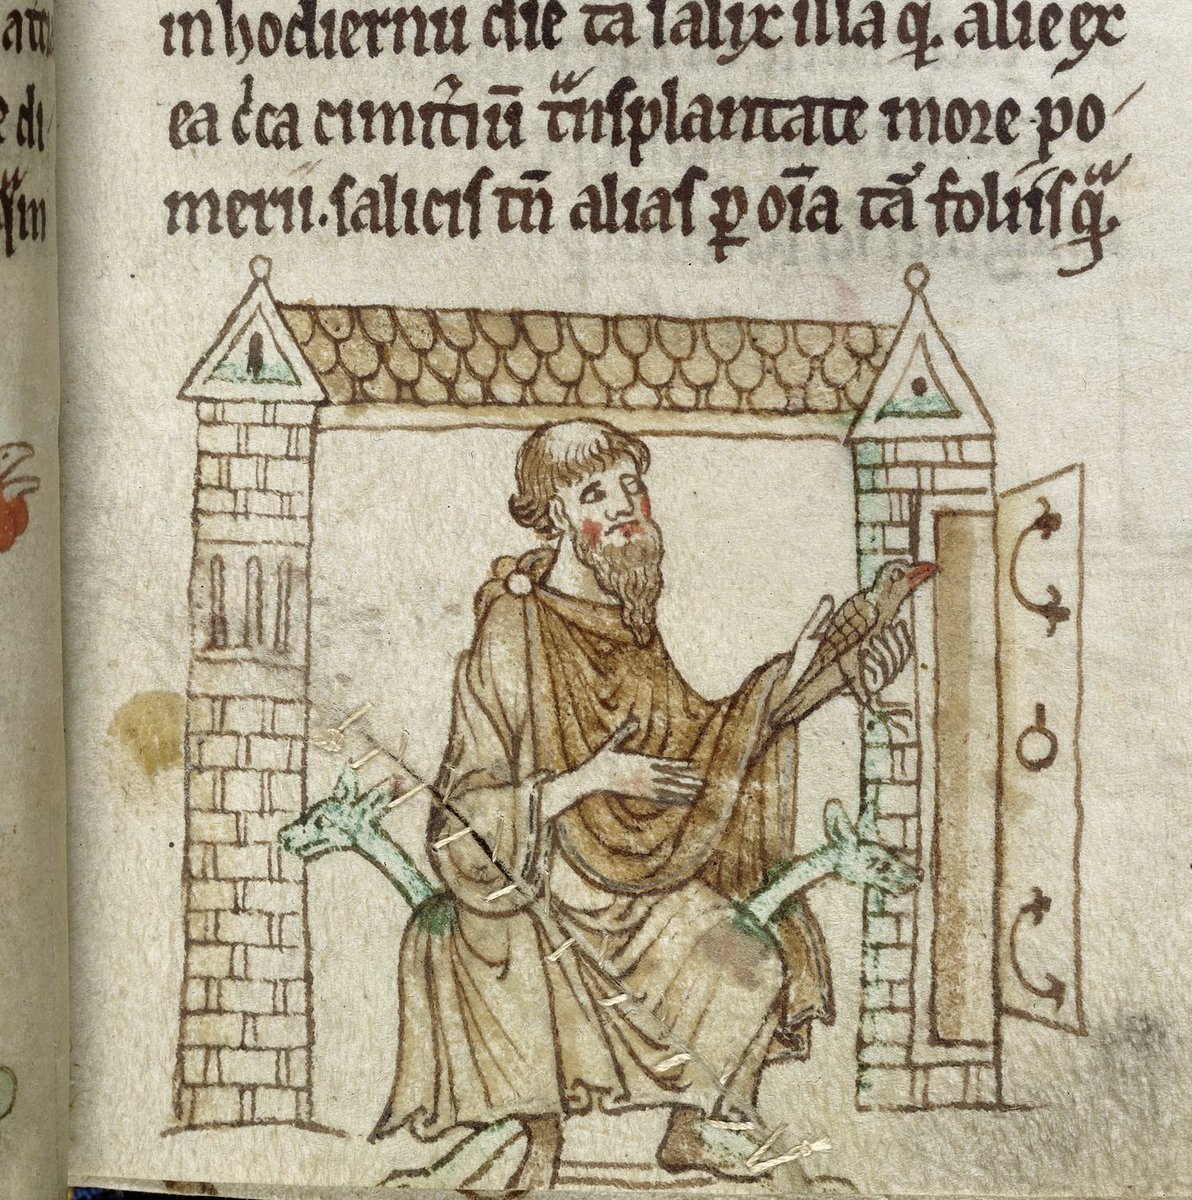 in hodiernū diē tā salix illa q̇. alie ex
ea c̓ca cimit̓iū t̄nsplantate more po-
merii. salicis tn̄ alias ꝑ oīa tā foliis q̄